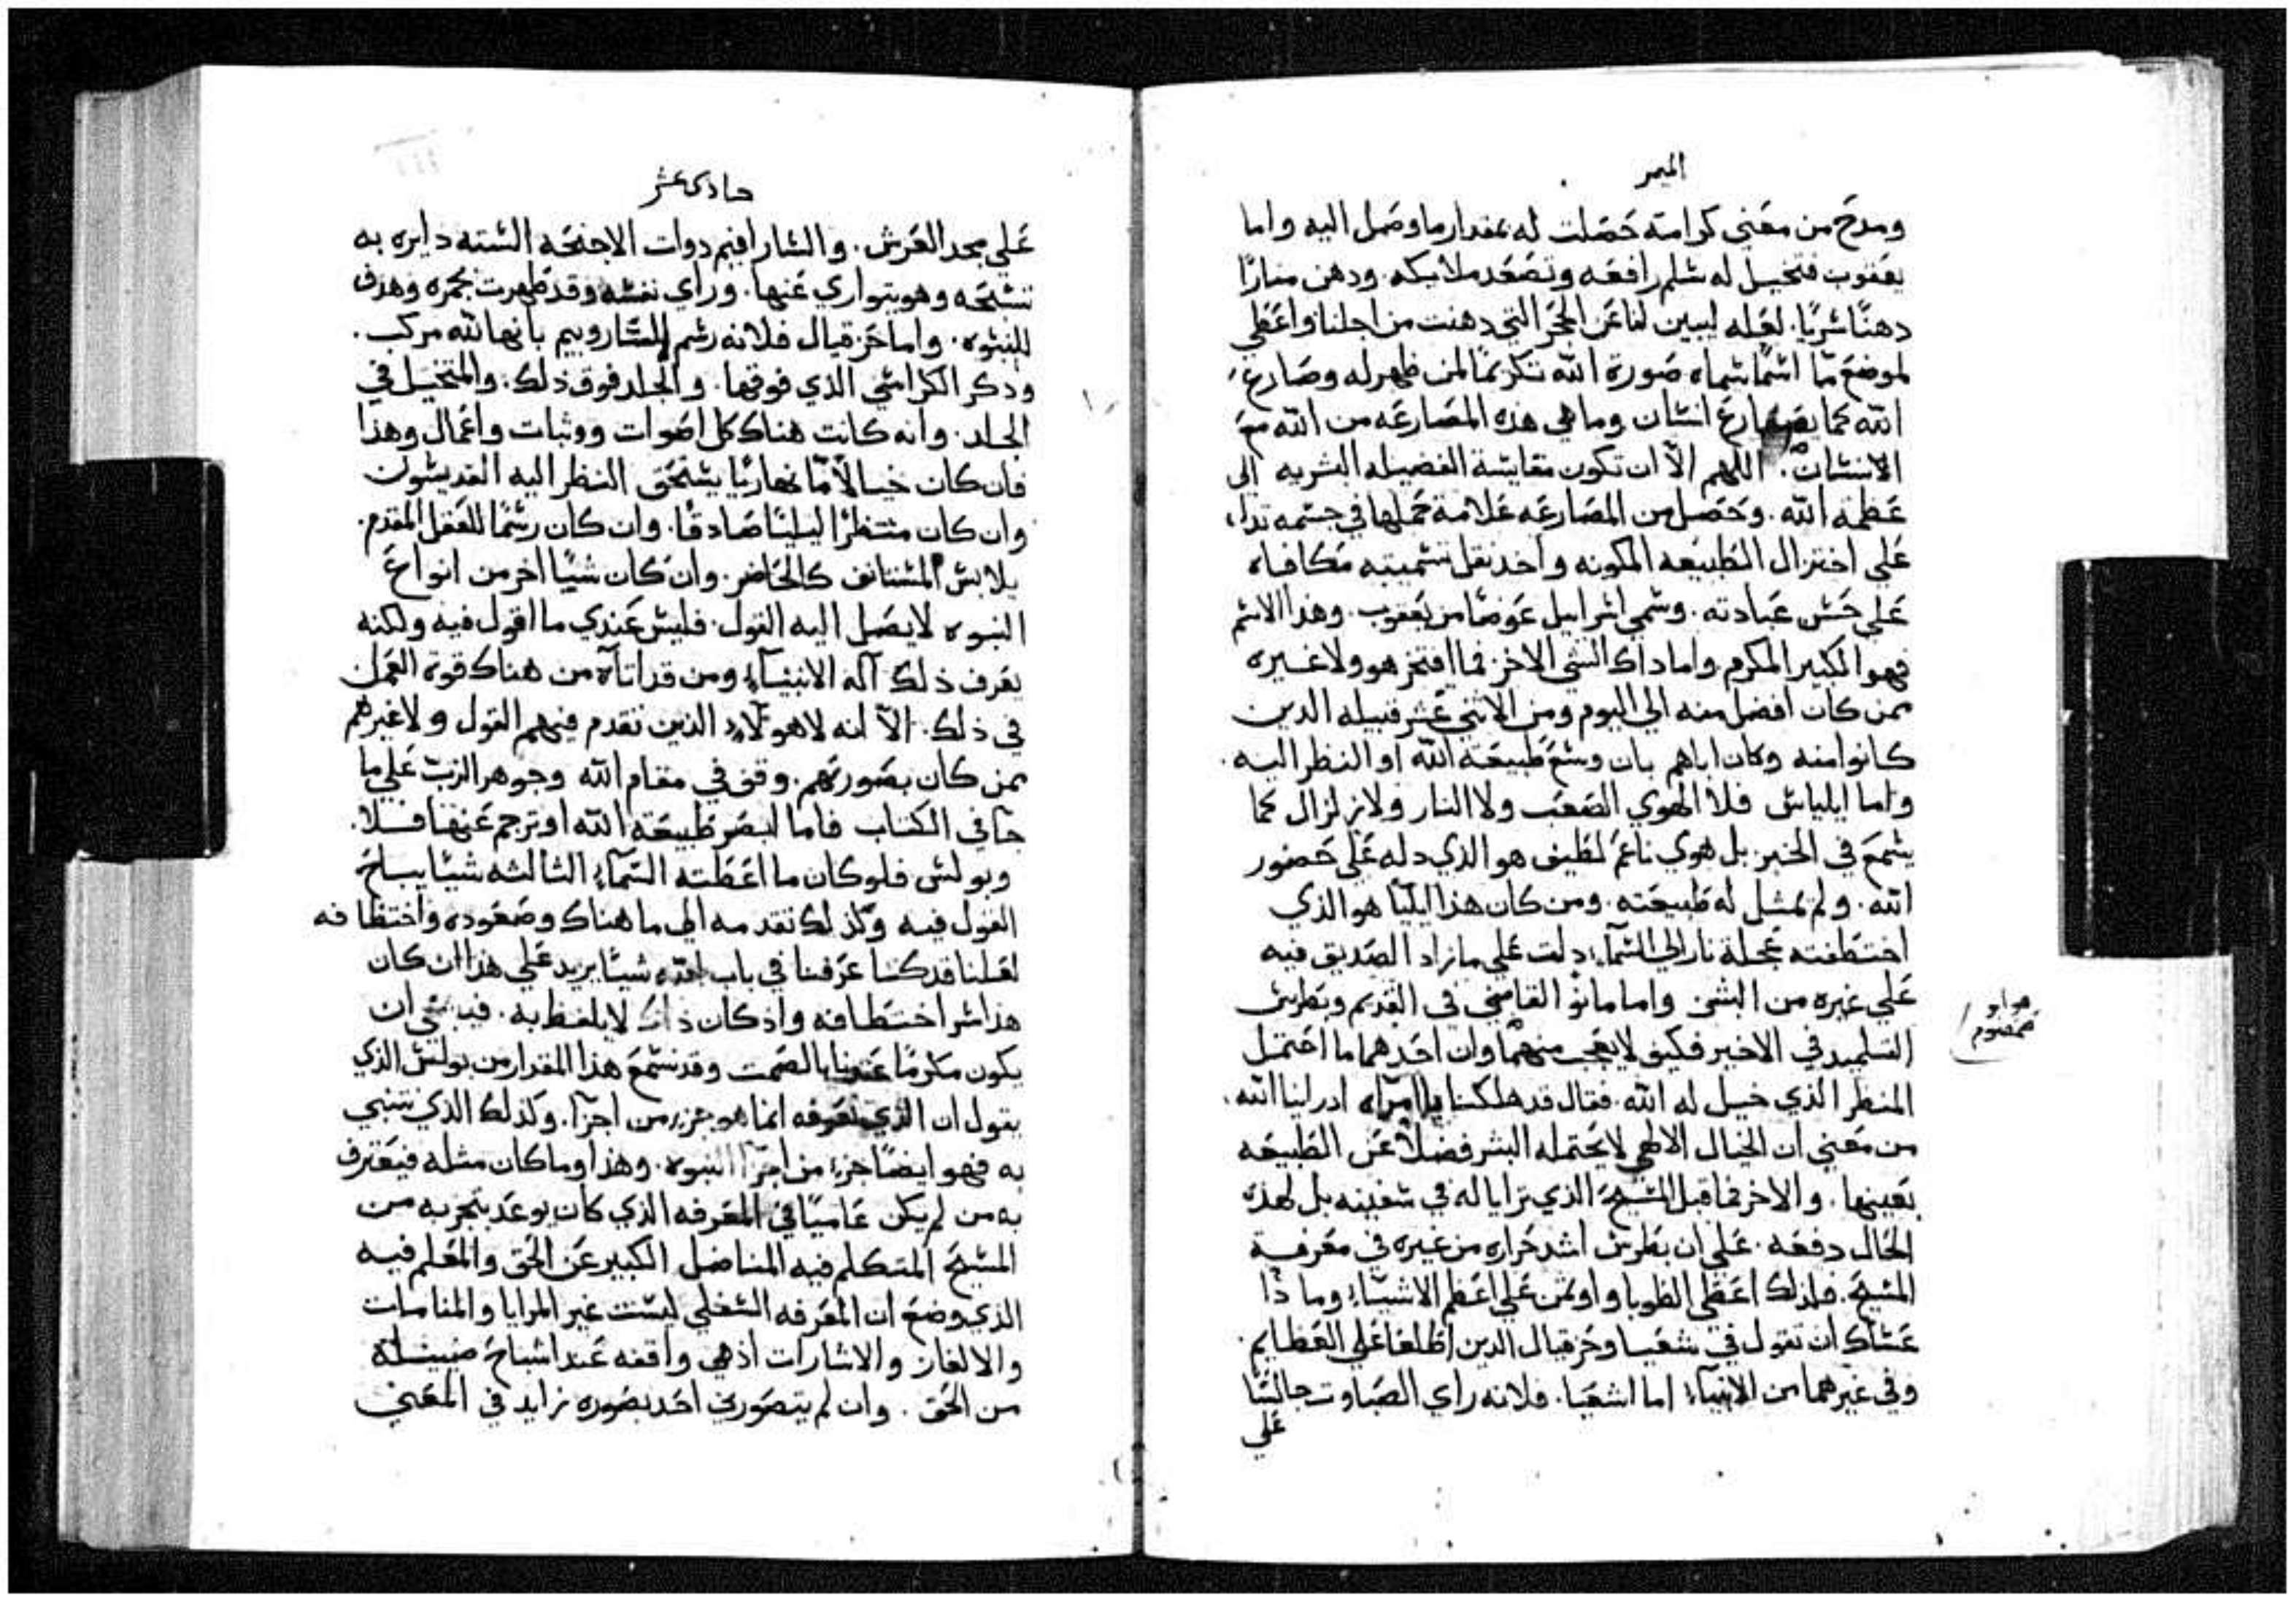 الميمر
ومدح من معني كرامته حصلت له بمقدار ما وصل اليه واما
يعقوب فتخيل له سلم رافعه وتصعد ملايكه. ودهن منارًا
دهنًا سريًا. لعله ليبين لنا عن الحجر التي دهنت من اجلنا واعطي
لموضع ما اسمًا سماه صورة الله تكريمًا لمن ظهر له وصارع
الله كما يصارع انسان وما هي هذه المصارعه من الله مع
الانسان. اللهم الّا ان تكون مقايسة الفضيله البشريه الى
عظمة الله. وحصل من المصارعه علامة حملها في جسمه تدل
علي اختزال الطبيعه المكونه واخد نقل تسميته مكافاه
علي حسن عبادته. وسمي اسراييل عوضًا من يعقوب. وهذا الاسم
فهو الكبير المكرم. واما داك الشي الاخر فما افتخر هو ولا غيره
ممن كان افضل منه الي اليوم ومن الاثني عشر قبيله الدين
كانوا منه وكان اباهم بان وسع طبيعة الله او النظر اليه.
واما ايلياس فلا الهوي الصعب ولا النار ولا زلزال كما
يسمع في الخبر. بل هوي ناعم لطيف هو الذي دله علي حضور
الله. ولم يمثل له طبيعته. ومن كان هذا ايليا هو الذي
اختطفته عجلة نار الي السماء دلت علي ما زاد الصديق فيه
علي غيره من البشر واما مانوا القاضي في القديم وبطرس
التلميد في الاخير فكيف لا يعجب منهما وان احدهما ما احتمل
المنظر الذي خيل له الله. فقال قد هلكنا يا امراه اد راينا الله.
من معني ان الخيال الالاهي لا يحتمله البشر فضلًا عن الطبيعه
بعينها. والاخر فما قبل المسيح الذي ترايا له في سفينه بل لهذه
الحال دفعه. علي ان بطرس اشد حراره من غيره في معرفة
المسيح. فلذلك اعطي الطوبا واوتمن علي اعظم الاشياء وما ذا
عساك ان تقول في شعيا وحزقيال الدين اطلعا علي العظايم.
وفي غيرهما من الانبياء اما اشعيا. فلانه راي الصباوت جالسًا
علي
هو ابو
شمشوم
حادى عشر
علي مجد العرش. والسارافيم دوات الاجنحه السته دايره به
تسبحه وهو يتواري عنها. وراي نفسه وقد طهرت بجمره وهدف
للنبوه. واما حزقيال فلانه رسم السارو بيم بانها لله مركب.
ودكر الكراسي الذي فوقها. والجلد فوق ذلك. والمتخيل في
الجلد. وانه كانت هناك كل اصوات ووثبات واعمال وهذا
فان كان خيالًا مّا نهاريًا يستحق النظر اليه القديسون
وان كان منتظرًا ليليًا صادقًا. وان كان رسمًا للعقل المقدم.
يلابس المستانف كالحاضر. وان كان شيًا اخر من انواع
النبوه لا يصل اليه القول. فليس عندي ما اقول فيه ولكنه
يعرف ذلك آله الانبياء ومن قد اتاه من هناك قوة العمل
في ذلك. الّا انه لا هولاء الذين تقدم فيهم القول ولا غيرهم
ممن كان بصورتهم. وقف في مقام الله وجوهر الرب علي ما
جا في الكتاب فاما لبصر طبيعة الله او ترجم عنها فلا.
وبولس فلو كان ما اعطته السماء الثالثه شيئا يباح
القول فيه وكذلك تقدمه الي ما هناك وصعوده واختطافه
لعلنا قد كنا عرفنا في باب الله شيئًا يزيد علي هذا ان كان
هذا سر اختطافه واذ كان ذلك لا يلفظ به. فينبغي ان
يكون مكرمًا عندنا بالصمت وقد نسمع هذا المقدار من بولس الذي
يقول ان الذي نعرفه انما هو جزء من اجزا. وكذلك الذي نتنبي
به فهو ايضًا جزء من اجزا النبوه. وهذا وما كان مثله فيعترف
به من لم يكن عاميًا في المعرفه الذي كان يوعد بتجربه من
المسيح المتكلم فيه المناضل الكبير عن الحق والمعلم فيه
الذي وضع ان المعرفه السفلي ليست غير المرايا والمنامات
والالغاز والاشارات اذ هي واقفه عند اشباح ضييلة
من الحق. وان لم يتصورني احد بصوره زايد في المعني